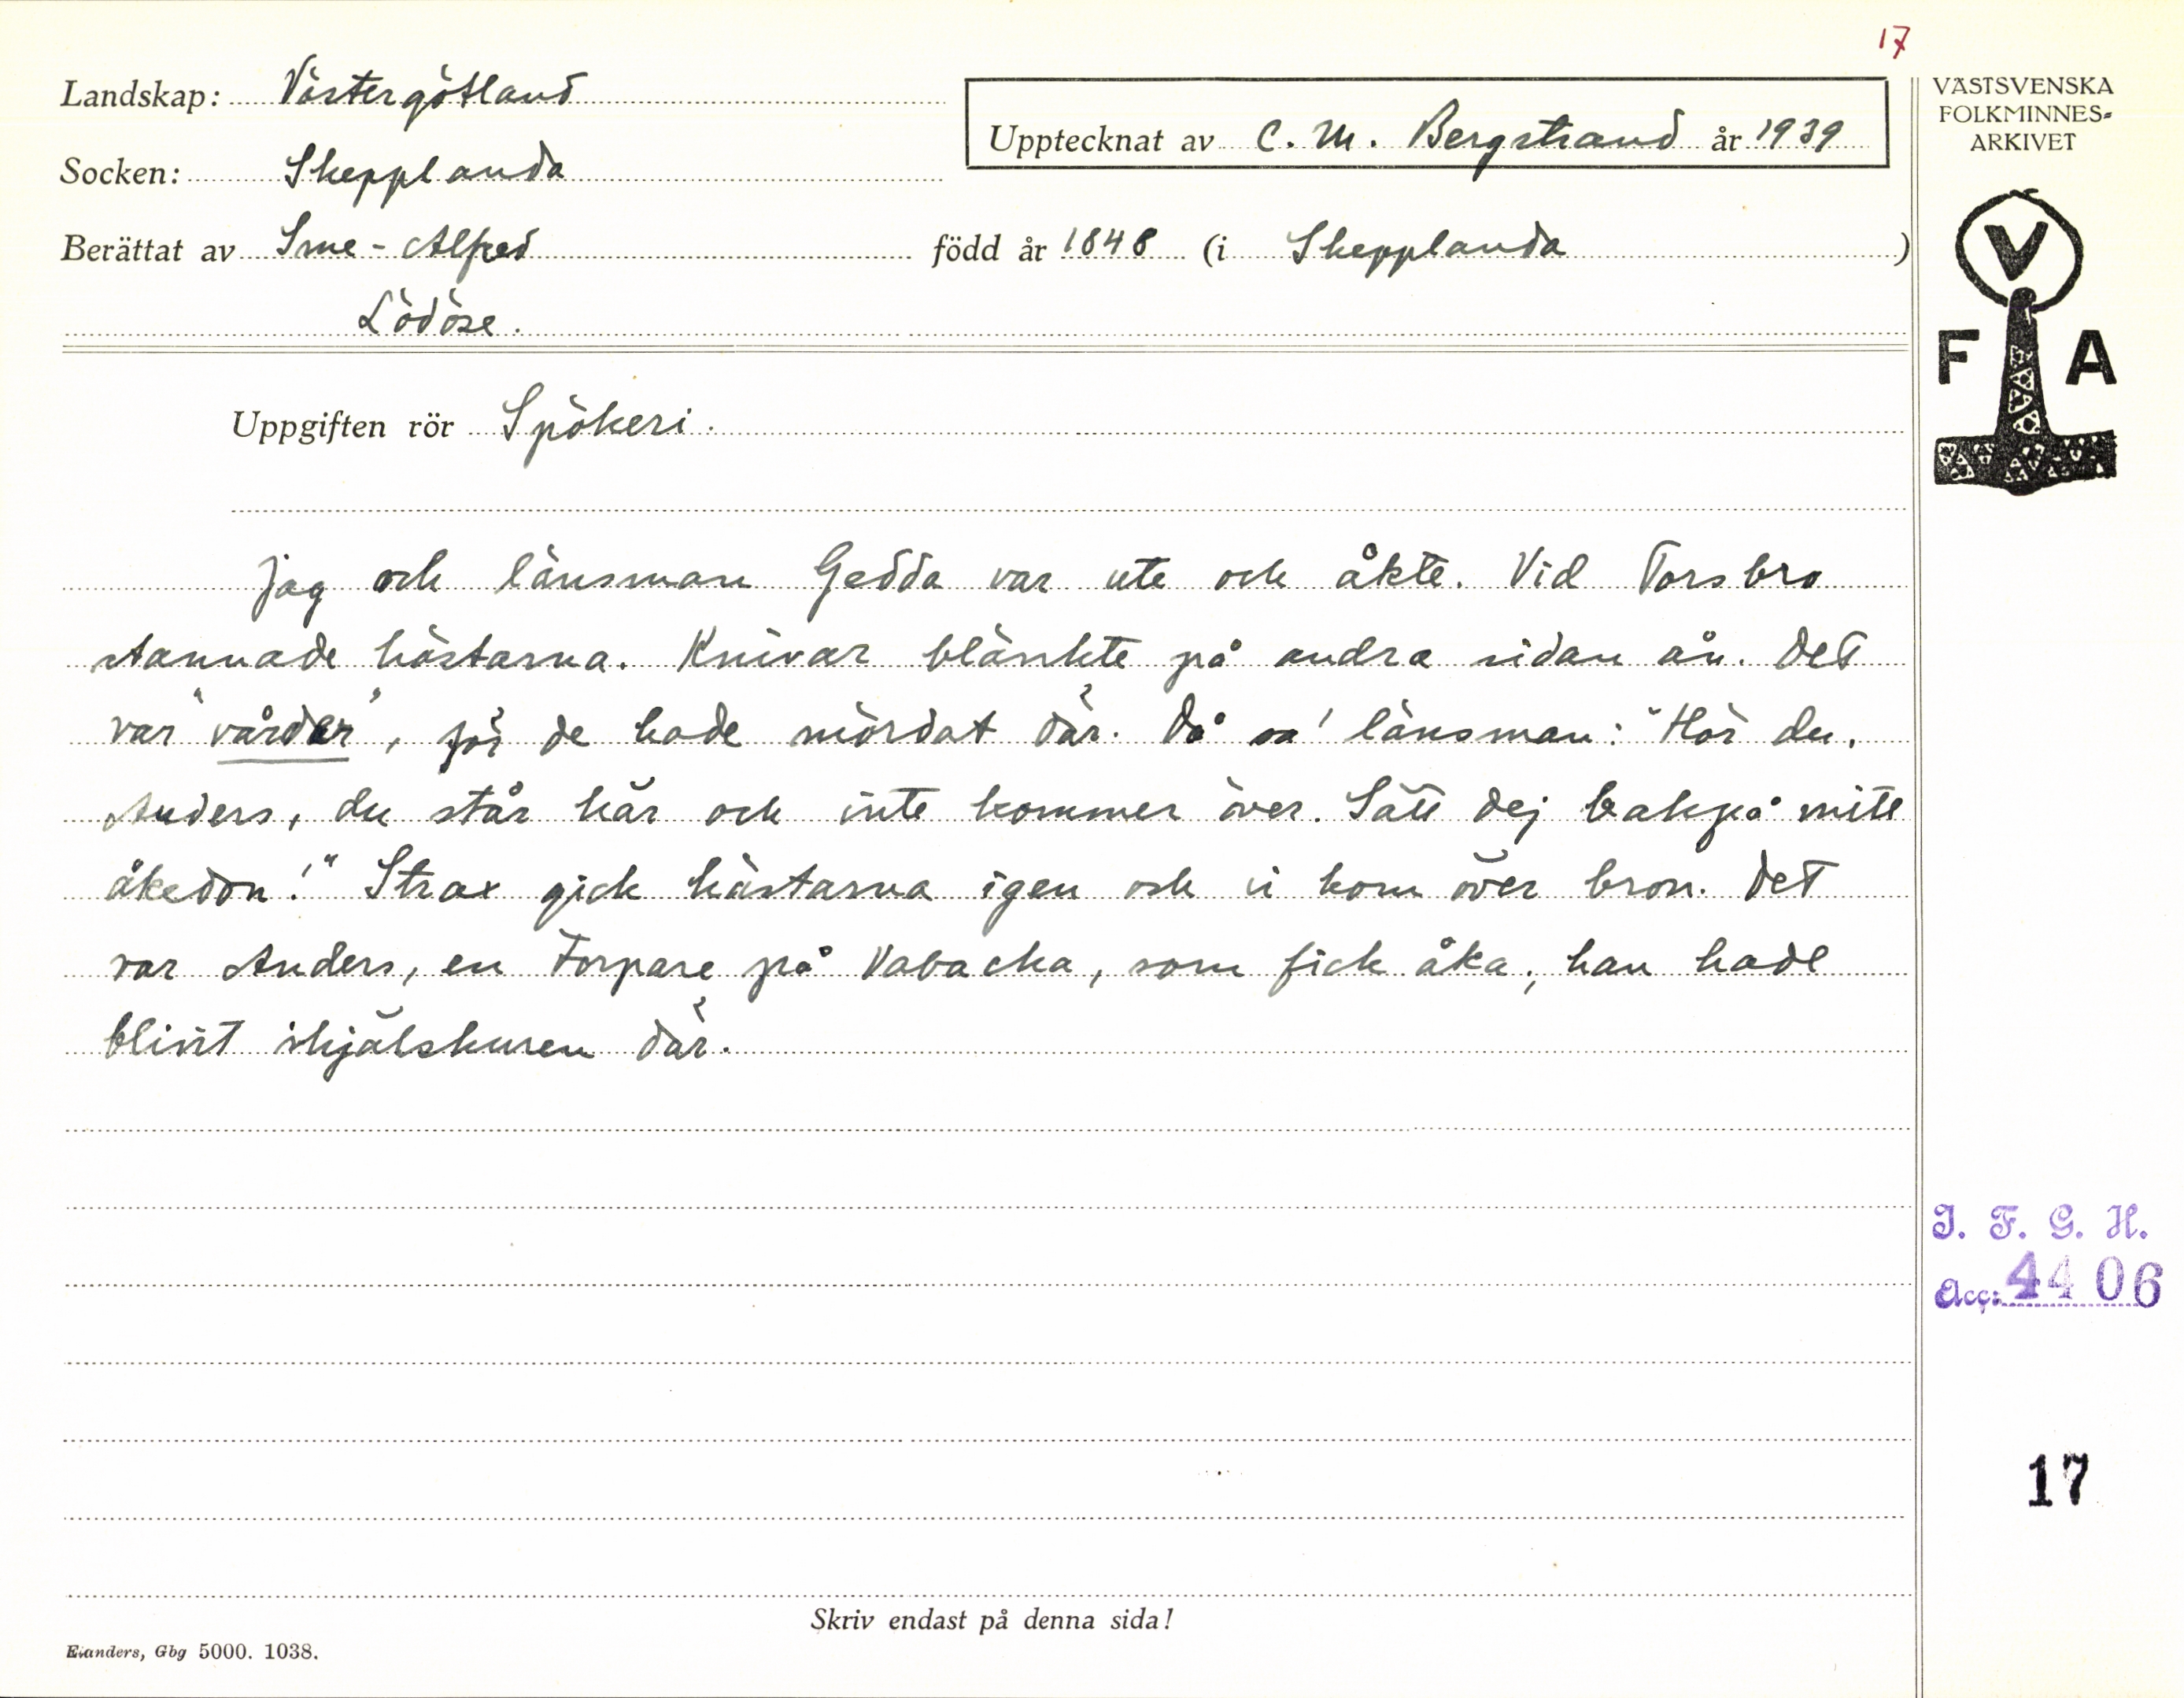 17
Landskap: Västergötland
Upptecknat av C. M. Bergstrand år 1939
Socken: Skepplanda
Berättat av Sme-Alfred född år 1848 (i Skepplanda)
Lödöse.
VÄSTSVENSKA
FOLKMINNES-
ARKIVET
V
F A
Uppgiften rör Spökeri.
Jag och länsman Gedda var ute och åkte. Vid Forsbro
stannade hästarna. Knivar blänkte på andra sidan ån. Det
var "vårdar", för de hade mördat där. Då sa' länsman: "Hör du,
Anders, du står här och inte kommer över. Sätt dej bakpå mitt
åkedon!" Strax gick hästarna igen och vi kom över bron. Det
var Anders, en Torpare på Vabacka, som fick åka, han hade
blivit ihjälskuren där.
I. F. G. H.
Acc: 4406
17
Skriv endast på denna sida!
Elanders, Gbg 5000. 1038.